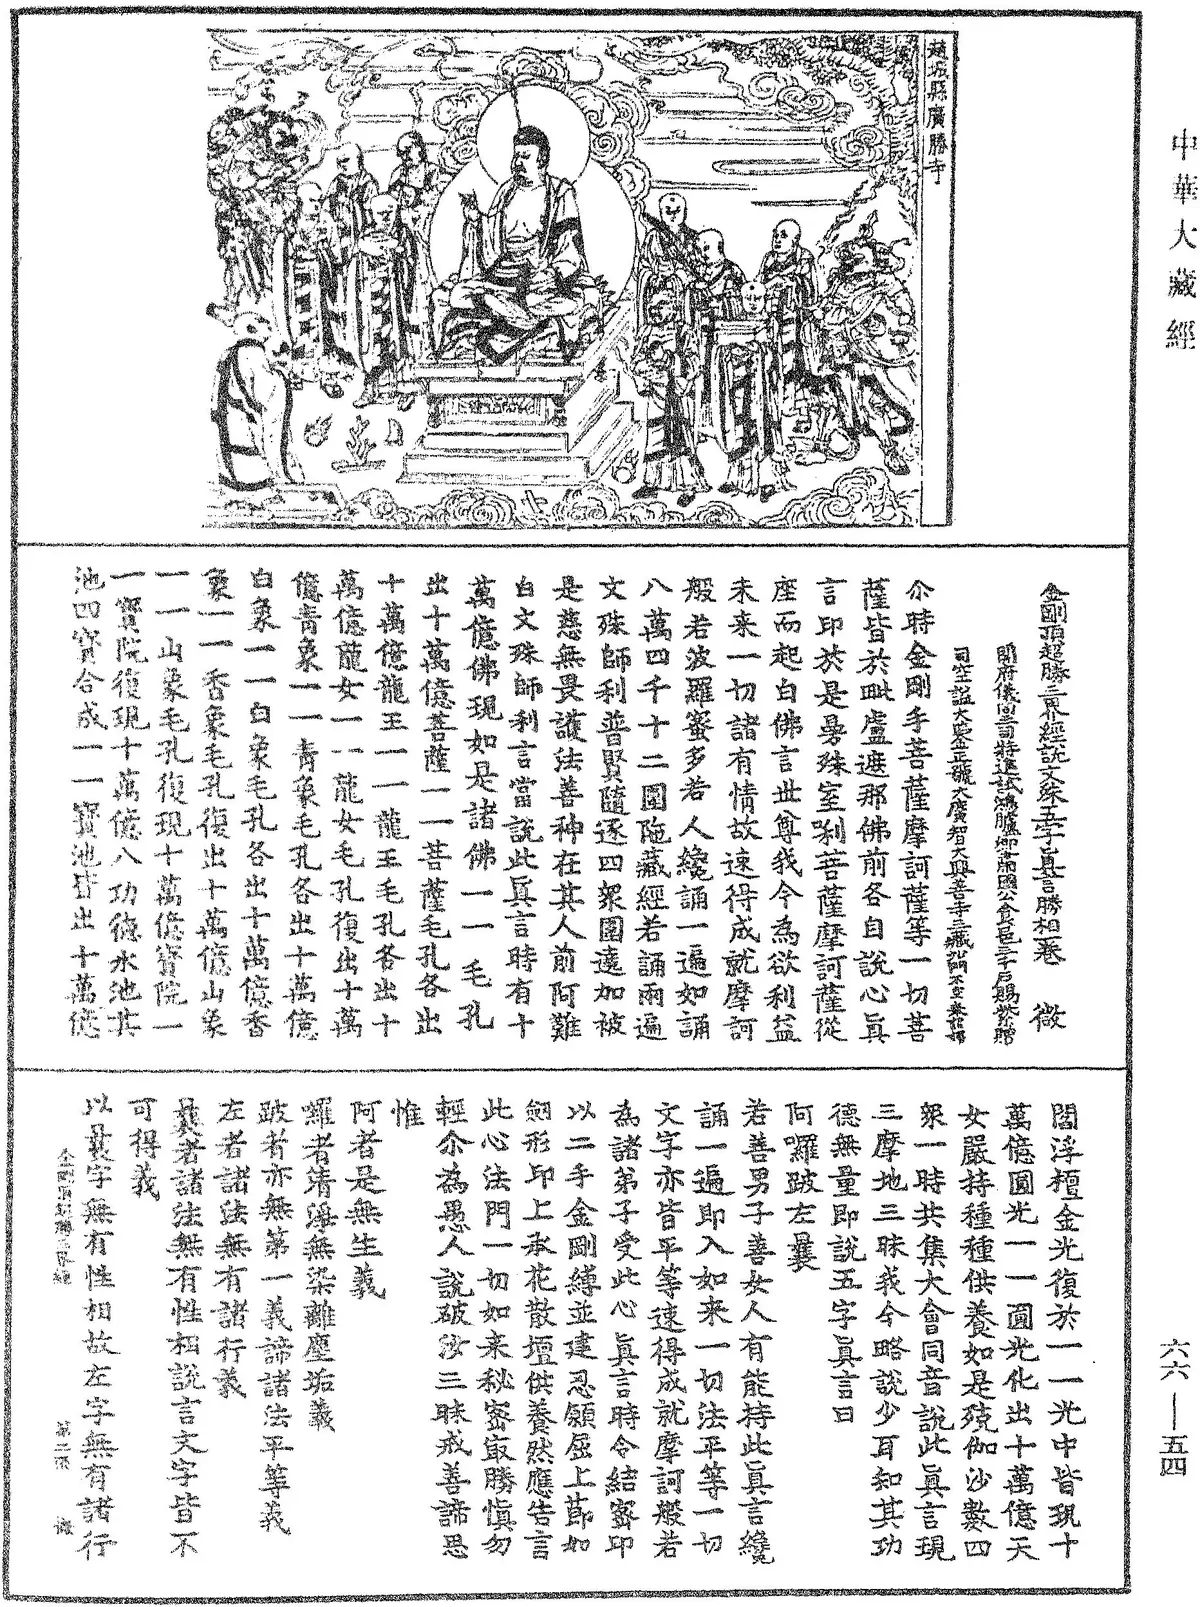 中華大藏經
趙城縣廣勝寺
金剛頂超勝三界經說文殊五字真言勝相一卷 微
開府儀同三司特進試鴻臚卿肅國公食邑三千戶賜紫贈
司空謚大鑒正號大廣智大興善寺三藏沙門不空奉詔譯
尒時金剛手菩薩摩訶薩等一切菩
薩皆於毗盧遮那佛前各自說心真
言印於是曼殊室唎菩薩摩訶薩從
座而起白佛言世尊我今為欲利益
未來一切諸有情故速得成就摩訶
般若波羅蜜多若人纔誦一遍如誦
八萬四千十二圍陁藏經若誦兩遍
文殊師利普賢隨逐四衆圍遶加被
是慈無畏護法善神在其人前阿難
白文殊師利言當說此真言時有十
萬億佛現如是諸佛一一毛孔
出十萬億菩薩一一菩薩毛孔各出
十萬億龍王一一龍王毛孔各出十
萬億龍女一一龍女毛孔復出十萬
億青象一一青象毛孔各出十萬億
白象一一白象毛孔各出十萬億香
象一一香象毛孔復出十萬億山象
一一山象毛孔復現十萬億寶院一
一寶院復現十萬億八功德水池其
池四寶合成一一寶池皆出十萬億
閻浮檀金光復於一一光中皆現十
萬億圓光一一圓光化出十萬億天
女嚴持種種供養如是殑伽沙數四
衆一時共集大會同音說此真言現
三摩地三昧我今略說少耳知其功
德無量即說五字真言曰
阿囉跛左曩
若善男子善女人有能持此真言纔
誦一遍即入如來一切法平等一切
文字亦皆平等速得成就摩訶般若
為諸弟子受此心真言時令結密印
以二手金剛縛並建忍願屈上節如
劒形印上承花散壇供養然應告言
此心法門一切如來秘密㝡勝慎勿
輕尒為愚人說破汝三昧戒善諦思
惟
阿者是無生義
囉者清淨無染離塵垢義
跛者亦無第一義諦諸法平等義
左者諸法無有諸行義
曩者諸法無有性相說言文字皆不
可得義
以曩字無有性相故左字無有諸行
金剛頂超勝三界經 第二張 微
六六—五四